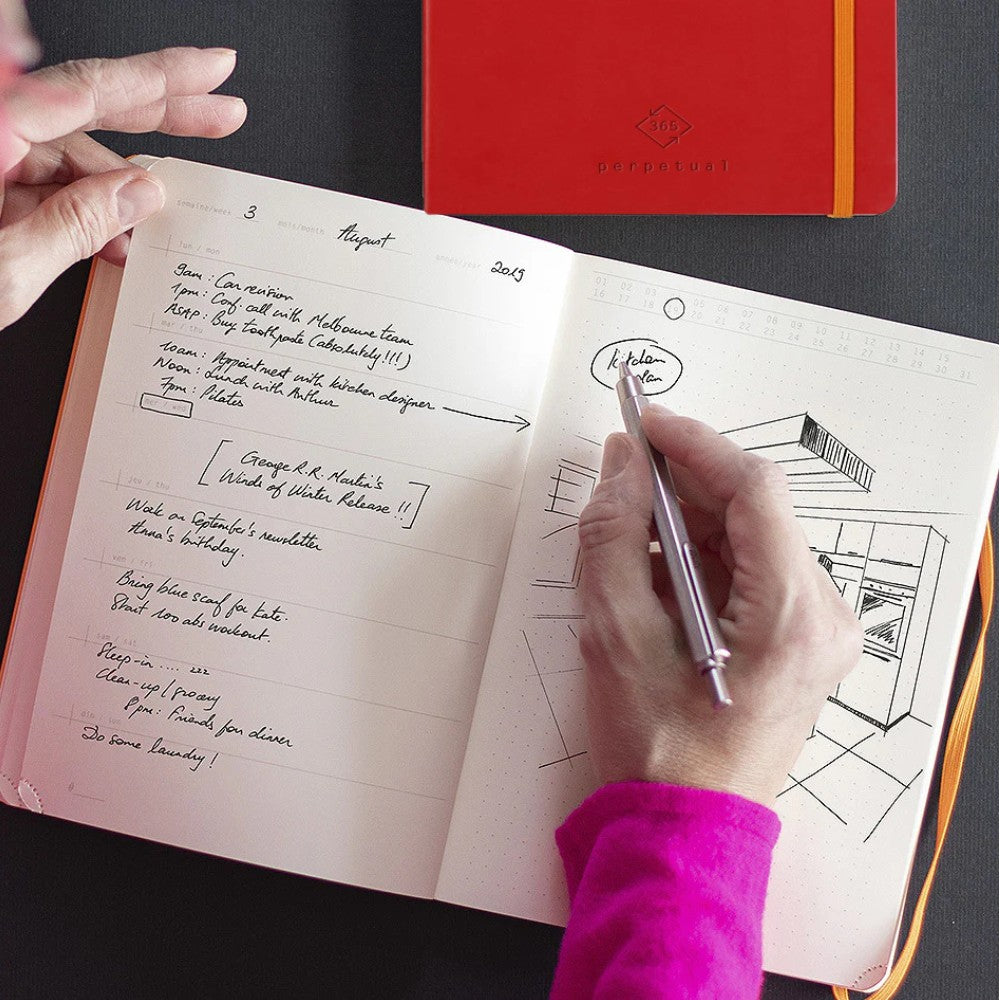 365
perpetual
semaine/week 3 mois/month August année/year 2019
lun / mon
9am : Car revision
1pm : Conf. call with Melbourne team
ASAP : Buy toothpaste (absolutely!!!)
mar / thu
10am : Appointment with kitchen designer
Noon : Lunch with Arthur
7pm : Pilates
mer / wed
George R.R. Martin's
Winds of Winter Release !!
jeu / thu
Work on September's newsletter
Anna's birthday.
ven / fri
Bring blue scarf for Kate.
Start 100 abs workout.
sam / sat
Sleep-in .... zzz
Clean-up / grocery
8pm : Friends for dinner
dim / sun
Do some laundry !
01 02 03 05 06 07 08 09 10 11 12 13 14 15
16 17 18 19 20 21 22 23 24 25 26 27 28 29 30 31
kitchen
plan